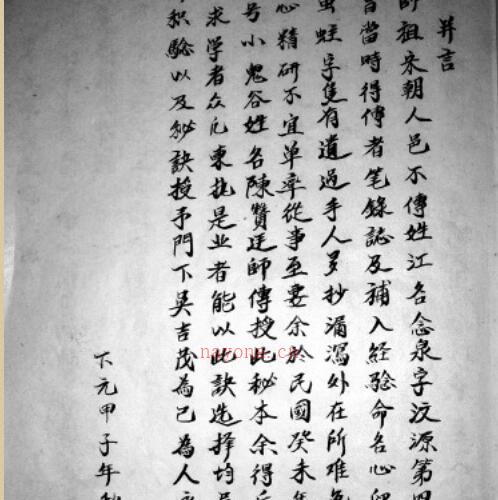 并言
師祖宋朝人邑不傳姓江名念泉字汶源第四
當時得傳者笔錄誌及補入經驗命名心
虫蛀字隻有遺過手人多抄漏瀉外在所難免
心精研不宜單率從事至要余於民國癸未年
号小鬼谷姓名陳贊廷師傳授此秘本余得
求学者众凡東執是业者能以此訣选择均
积驗以及秘訣授予門下吳吉茂為己為人
下元甲子年秋
nayona.cn